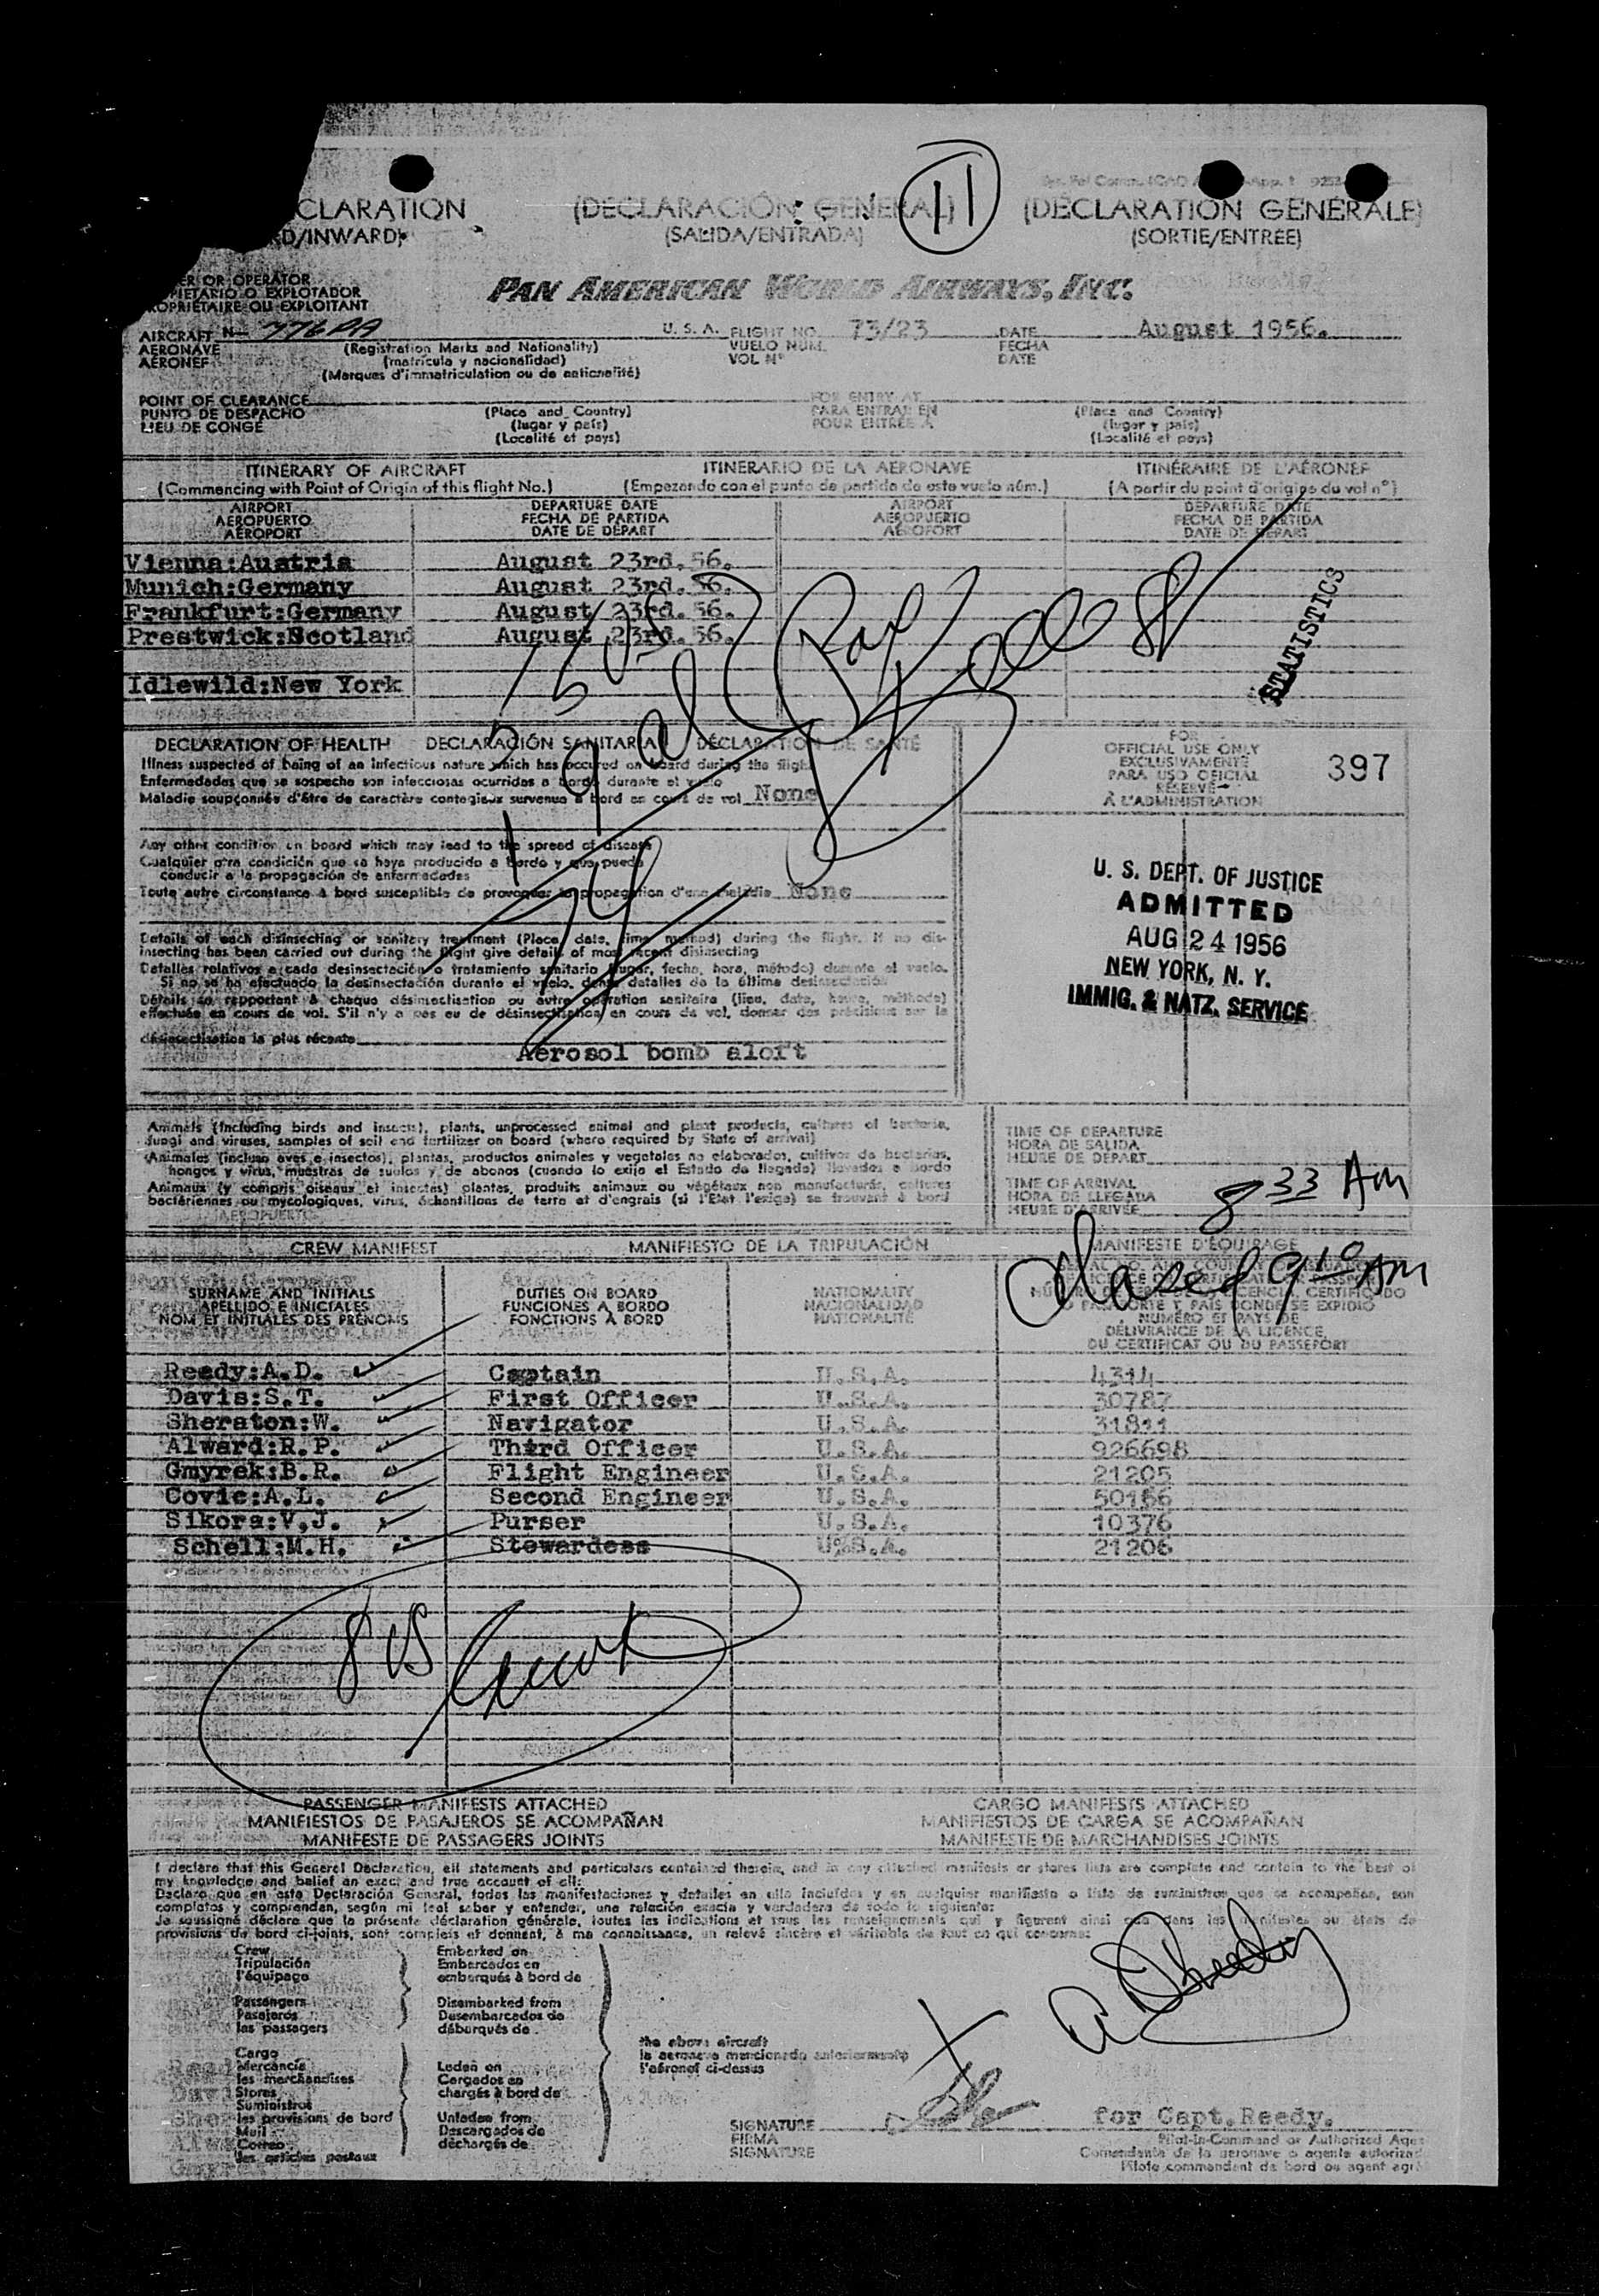 CLARATION (DECLARACIÓN GENERAL) 11 (DÉCLARATION GÉNÉRALE)
RD/INWARD) (SALIDA/ENTRADA) (SORTIE/ENTRÉE)
ER OR OPERATOR
PIETARIO O EXPLOTADOR
ROPRIÉTAIRE OU EXPLOITANT
PAN AMERICAN WORLD AIRWAYS, INC.
AIRCRAFT N— 776PA U. S. A. FLIGHT NO. 73/23 DATE August 1956.
AERONAVE (Registration Marks and Nationality) VUELO NUM. FECHA
AÉRONEF (matrícula y nacionalidad) VOL Nº DATE
(Marques d'immatriculation ou de nationalité)
POINT OF CLEARANCE FOR ENTRY AT
PUNTO DE DESPACHO (Place and Country) PARA ENTRAR EN (Place and Country)
LIEU DE CONGÉ (lugar y país) POUR ENTRÉE À (lugar y país)
(Localité et pays) (Localité et pays)
ITINERARY OF AIRCRAFT ITINERARIO DE LA AERONAVE ITINÉRAIRE DE L'AÉRONEF
(Commencing with Point of Origin of this flight No.) (Empezando con el punto de partida de este vuelo núm.) (A partir du point d'origine du vol nº)
AIRPORT DEPARTURE DATE AIRPORT DEPARTURE DATE
AEROPUERTO FECHA DE PARTIDA AEROPUERTO FECHA DE PARTIDA
AÉROPORT DATE DE DÉPART AÉROPORT DATE DE DÉPART
Vienna:Austria August 23rd.56.
Munich:Germany August 23rd.56.
Frankfurt:Germany August 23rd.56.
Prestwick:Scotland August 23rd.56.
Idlewild:New York
STATISTICS
DECLARATION OF HEALTH DECLARACIÓN SANITARIA DÉCLARATION DE SANTÉ
Illness suspected of being of an infectious nature which has occured on board during the flight
Enfermedades que se sospecha son infecciosas ocurridas a bordo durante el vuelo
Maladie soupçonnée d'être de caractère contagieux survenue à bord en cours de vol None
FOR
OFFICIAL USE ONLY
EXCLUSIVAMENTE
PARA USO OFICIAL
RÉSERVÉ
À L'ADMINISTRATION
397
Any other condition on board which may lead to the spread of disease
Cualquier otra condición que se haya producido a bordo y que pueda
conducir a la propagación de enfermedades
Toute autre circonstance à bord susceptible de provoquer la propagation d'une maladie None
U. S. DEPT. OF JUSTICE
ADMITTED
AUG 24 1956
NEW YORK, N. Y.
IMMIG. & NATZ. SERVICE
Details of each disinsecting or sanitary treatment (Place, date, time, method) during the flight. If no dis-
insecting has been carried out during the flight give details of most recent disinsecting
Detalles relativos a cada desinsectación o tratamiento sanitario (lugar, fecha, hora, método) durante el vuelo.
Si no se ha efectuado la desinsectación durante el vuelo, dense detalles de la última desinsectación
Détails se rapportant à chaque désinsectisation ou autre opération sanitaire (lieu, date, heure, méthode)
effectuée en cours de vol. S'il n'y a pas eu de désinsectisation en cours de vol, donner des précisions sur la
désinsectisation la plus récente
Aerosol bomb aloft
Animals (including birds and insects), plants, unprocessed animal and plant products, cultures of bacteria,
fungi and viruses, samples of soil and fertilizer on board (where required by State of arrival)
Animales (incluso aves e insectos), plantas, productos animales y vegetales no elaborados, cultivos de bacterias,
hongos y virus, muestras de suelos y de abonos (cuando lo exija el Estado de llegada) llevados a bordo
Animaux (y compris oiseaux et insectes) plantes, produits animaux ou végétaux non manufacturés, cultures
bactériennes ou mycologiques, virus, échantillons de terre et d'engrais (si l'État l'exige) se trouvant à bord
TIME OF DEPARTURE
HORA DE SALIDA
HEURE DE DÉPART
TIME OF ARRIVAL
HORA DE LLEGADA 8 33 AM
HEURE D'ARRIVÉE
CREW MANIFEST MANIFIESTO DE LA TRIPULACIÓN MANIFESTE D'ÉQUIPAGE
9 10 AM
SURNAME AND INITIALS DUTIES ON BOARD NATIONALITY
APELLIDO E INICIALES FUNCIONES A BORDO NACIONALIDAD
NOM ET INITIALES DES PRÉNOMS FONCTIONS À BORD NATIONALITÉ
NUMÉRO ET PAYS DE
DÉLIVRANCE DE LA LICENCE,
DU CERTIFICAT OU DU PASSEPORT
Reedy:A.D. Captain U.S.A. 4314
Davis:S.T. First Officer U.S.A. 30787
Sheraton:W. Navigator U.S.A. 31811
Alward:R.P. Third Officer U.S.A. 926698
Gmyrek:B.R. Flight Engineer U.S.A. 21205
Covic:A.L. Second Engineer U.S.A. 50156
Sikora:V,J. Purser U.S.A. 10376
Schell:M.H. Stewardess U%S.A. 21206
PASSENGER MANIFESTS ATTACHED CARGO MANIFESTS ATTACHED
MANIFIESTOS DE PASAJEROS SE ACOMPAÑAN MANIFIESTOS DE CARGA SE ACOMPAÑAN
MANIFESTE DE PASSAGERS JOINTS MANIFESTE DE MARCHANDISES JOINTS
I declare that this General Declaration, all statements and particulars contained therein, and in any attached manifests or stores lists are complete and contain to the best of
my knowledge and belief an exact and true account of all:
Declaro que en esta Declaración General, todas las manifestaciones y detalles en ella incluídos y en cualquier manifiesto o lista de suministros que se acompañan, son
completos y comprenden, según mi leal saber y entender, una relación exacta y verdadera de todo lo siguiente:
Je soussigné déclare que la présente déclaration générale, toutes les indications et tous les renseignements qui y figurent ainsi que dans les manifestes ou états de
provisions de bord ci-joints, sont complets et donnent, à ma connaissance, un relevé sincère et véritable de tout ce qui concerne:
Crew Embarked on
Tripulación Embarcados en
l'équipage embarqués à bord de
Passengers Disembarked from
Pasajeros Desembarcados de
les passagers débarqués de
the above aircraft
la aeronave mencionada anteriormente
l'aéronef ci-dessus
Cargo
Mercancía Laden on
les marchandises Cargados en
Stores chargés à bord de
Suministros
les provisions de bord Unladen from
Mail Descargados de
Correo déchargés de
les articles postaux
SIGNATURE for Capt.Reedy.
FIRMA Pilot-in-Command or Authorized Age
SIGNATURE Comandante de la aeronave o agente autoriza
Pilote commandant de bord ou agent agr